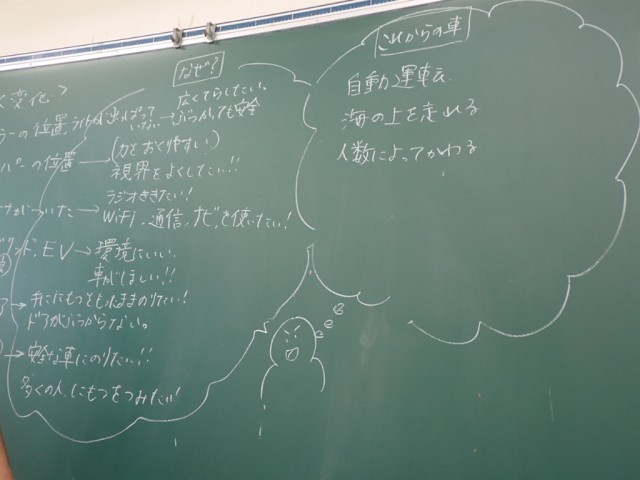 <変化>
なぜ?
広くてらしたい。
ラーの位置、ライトが出っぱっていない→ぶつかっても安全
パーの位置→(力をおくりやすい)
視界をよくしたい!!
ラジオききたい!
ナがついた→WiFi、通信、ナビを使いたい!
ブリッド、EV→環境にいい
車がほしい!!
ア→手ににもつともったままのりたい!
ドアがぶつからない。
→安全な車にのりたい!!
多くの人、にもつをつみたい!
これからの車
自動運転
海の上を走れる
人数によってかわる